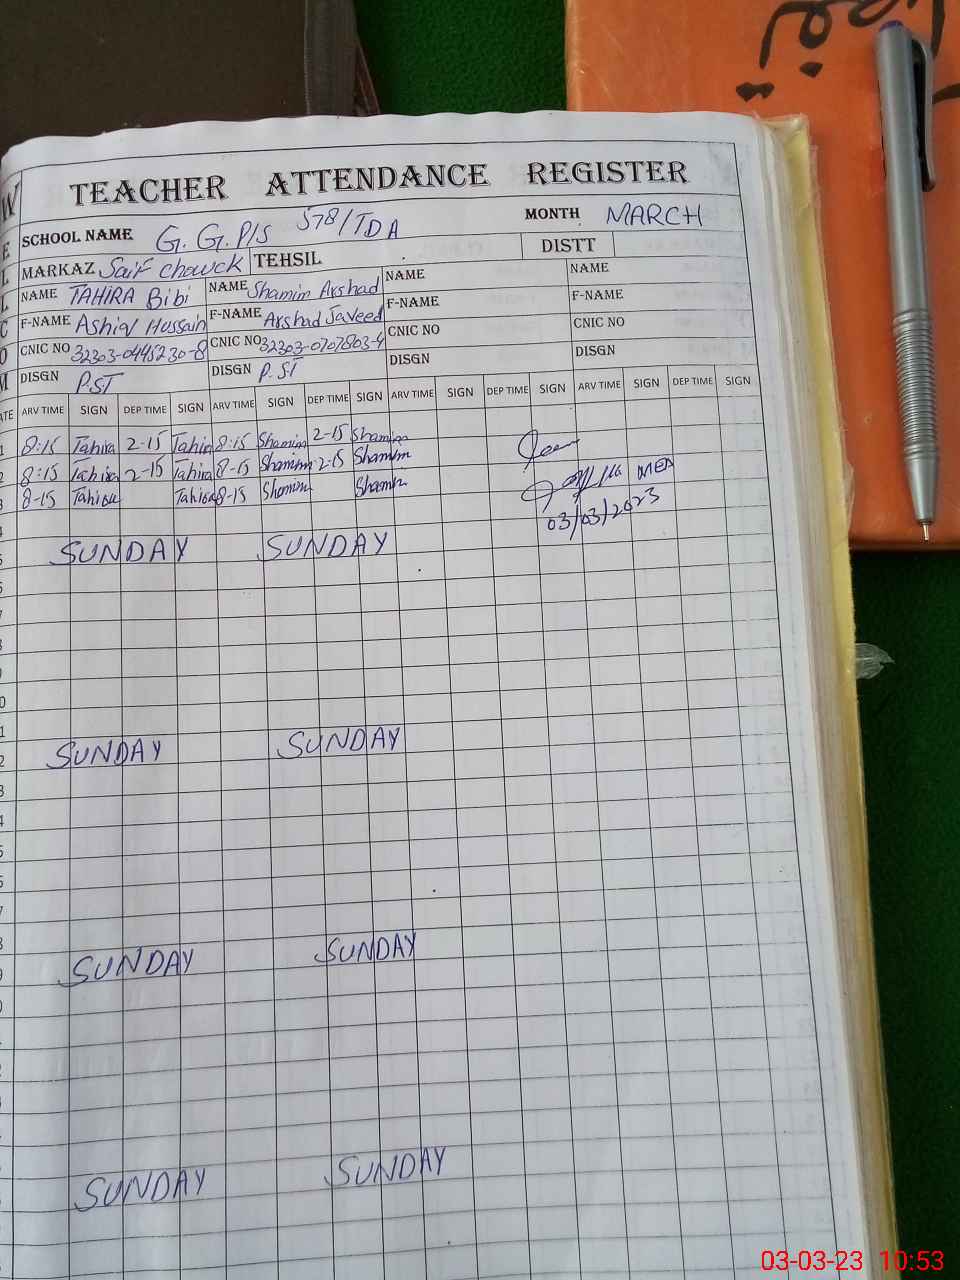 تفہ
TEACHER ATTENDANCE REGISTER
SCHOOL NAME G. G. P/S 578/TDA MONTH MARCH
MARKAZ Saif Chowck TEHSIL DISTT
NAME TAHIRA Bibi NAME Shamim Arshad NAME NAME
F-NAME Ashiq Hussain F-NAME Arshad Javeed F-NAME F-NAME
CNIC NO 32303-0445230-8 CNIC NO 32303-0707803-4 CNIC NO CNIC NO
DISGN P.ST DISGN P.ST DISGN DISGN
ATE ARV TIME SIGN DEP TIME SIGN ARV TIME SIGN DEP TIME SIGN ARV TIME SIGN DEP TIME SIGN ARV TIME SIGN DEP TIME SIGN
1 8:15 Tahira 2-15 Tahira 8:15 Shamim 2-15 Shamim
2 8:15 Tahira 2-15 Tahira 8-15 Shamim 2-15 Shamim
3 8-15 Tahira Tahira 8-15 Shamim Shamim
MEA
03/03/2023
SUNDAY SUNDAY
SUNDAY SUNDAY
SUNDAY SUNDAY
SUNDAY SUNDAY
03-03-23 10:53